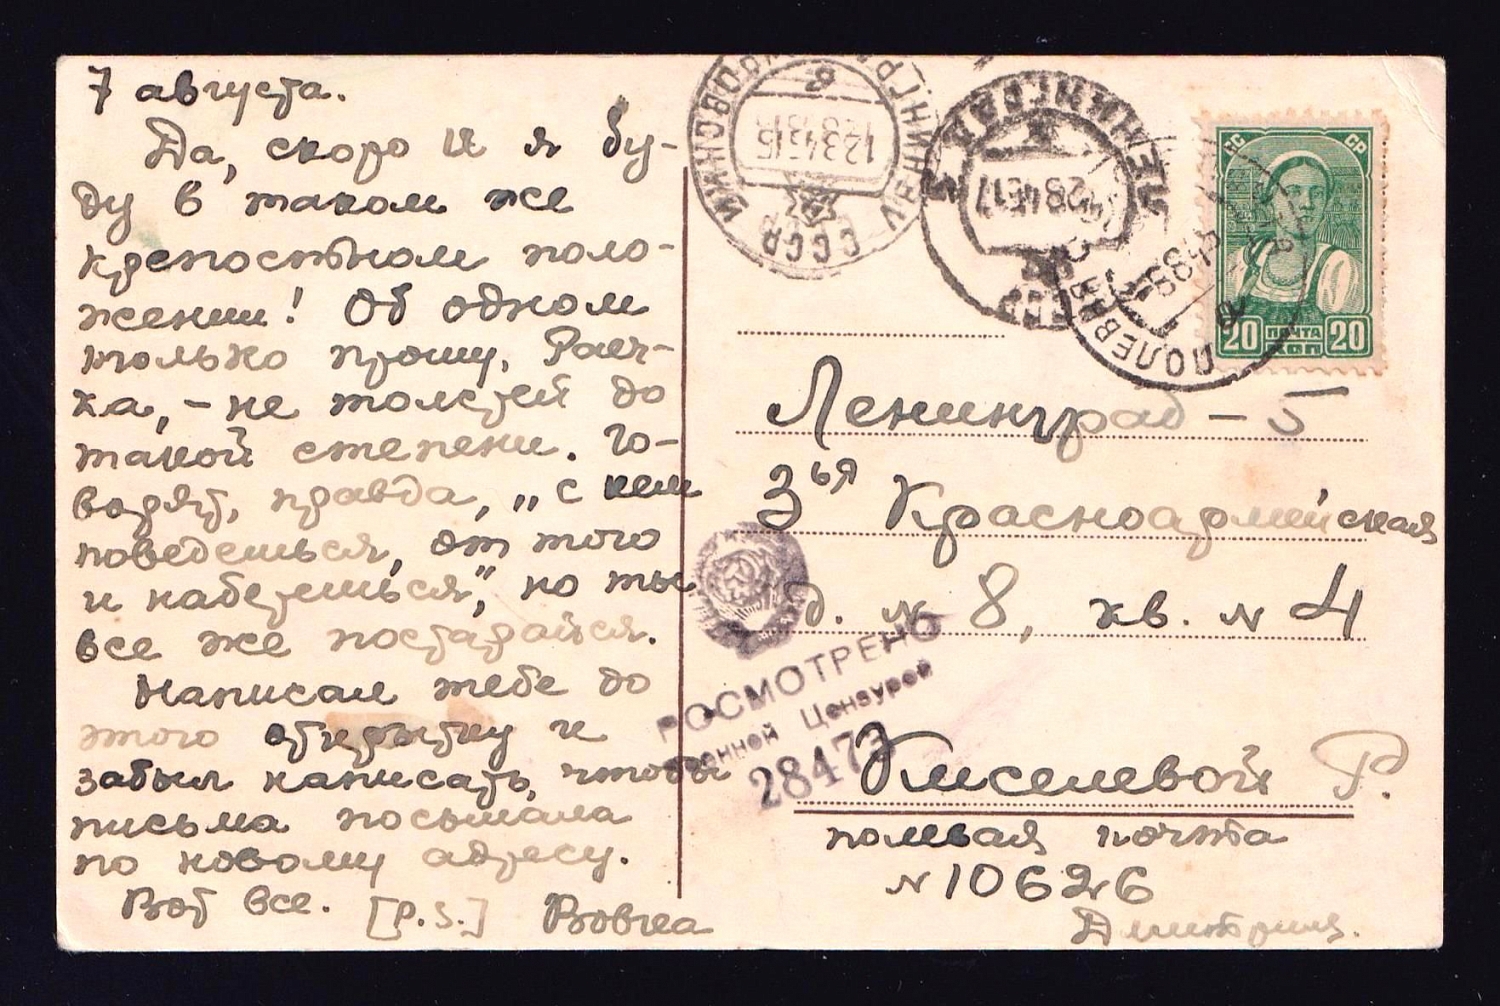 7 августа.
Да, скоро и я бу-
ду в таком же
крепостном поло-
жении! Об одном
только прошу, Раеч-
ка, - не толстей до
такой степени. Го-
ворят, правда, „с кем
поведешься, от того
и наберешься", но ты
все же постарайся.
Написал тебе до
этого открытку и
забыл написать, чтобы
письма посылала
по новому адресу.
Вот все. [P.S.] Вовка
СССР
ЛЕНИНГРАД
ПОЛЕВ
СССР
20 ПОЧТА 20
КОП
Ленинград - 5
3ья Красноармейская
д. № 8, кв. № 4
ПРОСМОТРЕНО
Военной Цензурой
28473
Киселевой Р.
полевая почта
№ 10626